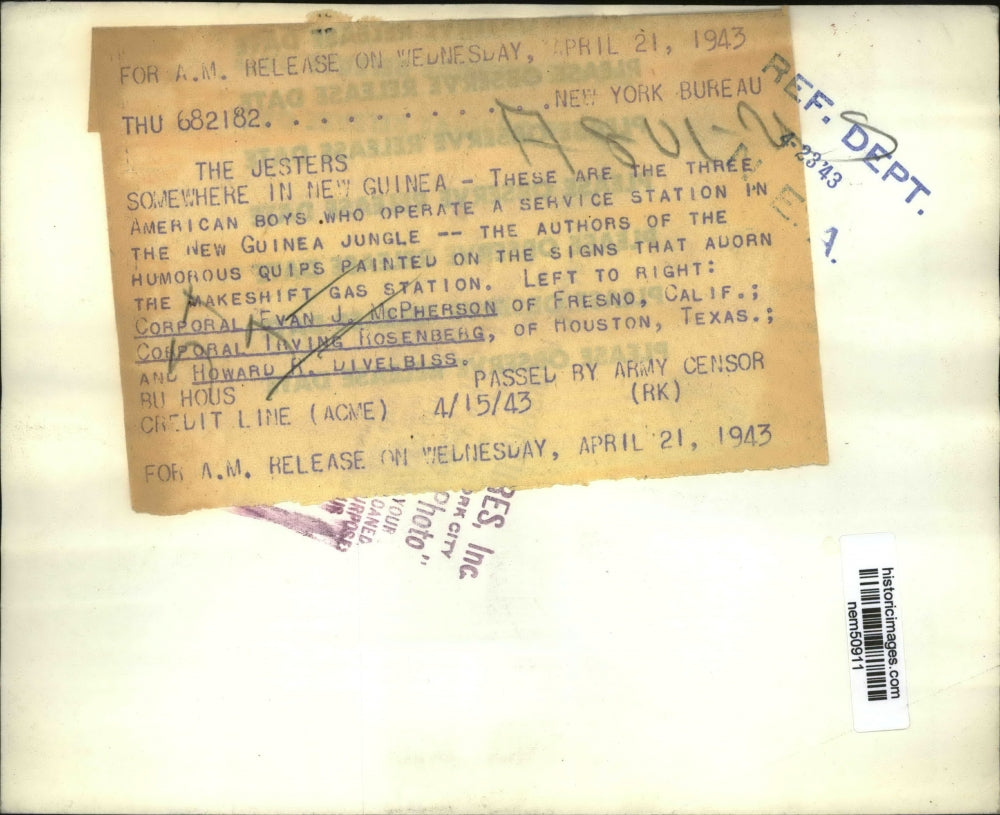 FOR A.M. RELEASE ON WEDNESDAY, APRIL 21, 1943
THU 682182. . . . . . . . . . . .NEW YORK BUREAU
THE JESTERS
SOMEWHERE IN NEW GUINEA - THESE ARE THE THREE
AMERICAN BOYS WHO OPERATE A SERVICE STATION IN
THE NEW GUINEA JUNGLE -- THE AUTHORS OF THE
HUMOROUS QUIPS PAINTED ON THE SIGNS THAT ADORN
THE MAKESHIFT GAS STATION. LEFT TO RIGHT:
CORPORAL EVAN J. MCPHERSON OF FRESNO, CALIF.;
CORPORAL IRVING ROSENBERG, OF HOUSTON, TEXAS.;
AND HOWARD R. DIVELBISS.
BU HOUS PASSED BY ARMY CENSOR
CREDIT LINE (ACME) 4/15/43 (RK)
FOR A.M. RELEASE ON WEDNESDAY, APRIL 21, 1943
REF. DEPT.
4-23'43
N. E. A.
Inc.
CITY
Photo"
YOUR
historicimages.com
nem50911